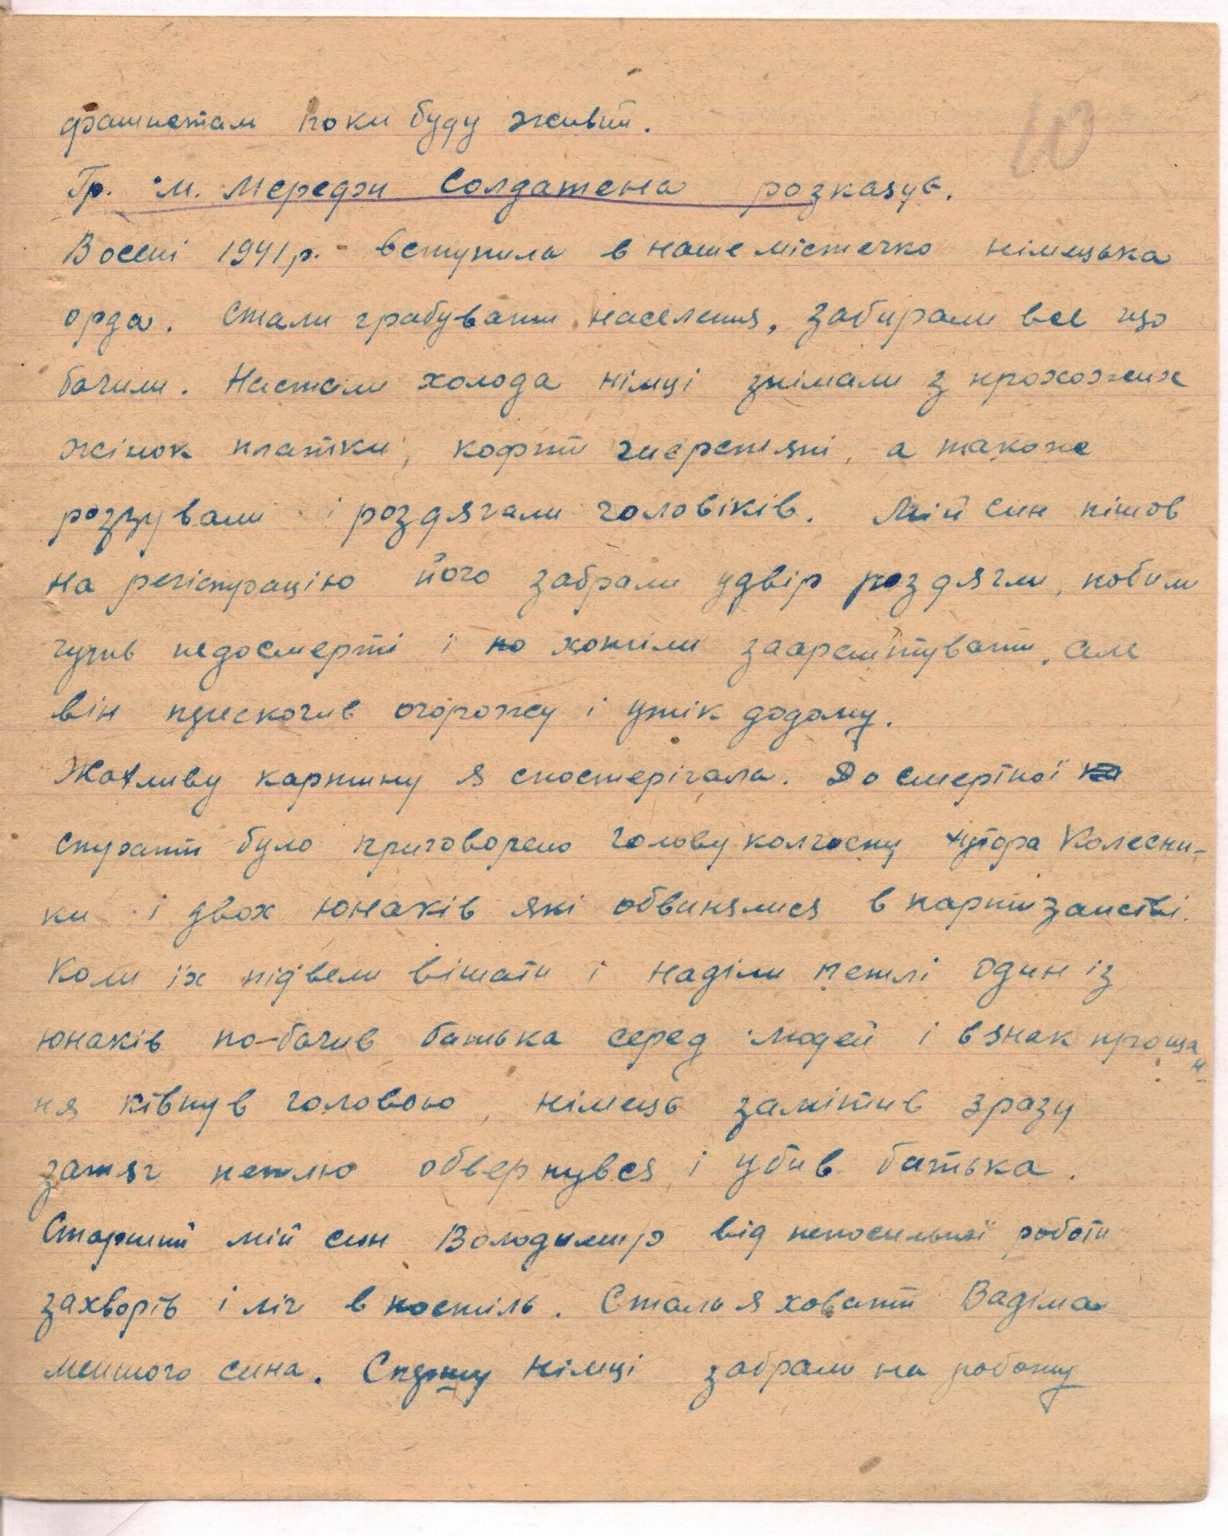 10
фашистам поки буду живий.
Гр. м. Мерефи Солдатена розказує.
Восені 1941 р. вступила в наше містечко німецька
орда. Стали грабувати населення, забирали все що
бачили. Настали холода німці знімали з прохожих
жінок платки, кофти шерстяні, а також
роззували і роздягали чоловіків. Мій син пішов
на регістрацію його забрали у двір роздягли, побили
чуть недосмерті і хотіли заарештувати, але
він прискочив огорожу і утік додому.
Жахливу картину я спостерігала. До смертної
страти було приговорено голову колгоспу хутора Колесни-
ки і двох юнаків які обвинялися в партизанстві.
Коли їх підвели вішати і наділи петлі один із
юнаків по-бачив батька серед людей і в знак прощан-
ня ківнув головою, німець замітив зразу
затяг петлю обвернувся і убив батька.
Старший мій син Володимир від непосильної роботи
захворів і ліг в постіль. Сталь я ховати Вадіма
меншого сина. Спершу німці забрали на роботу